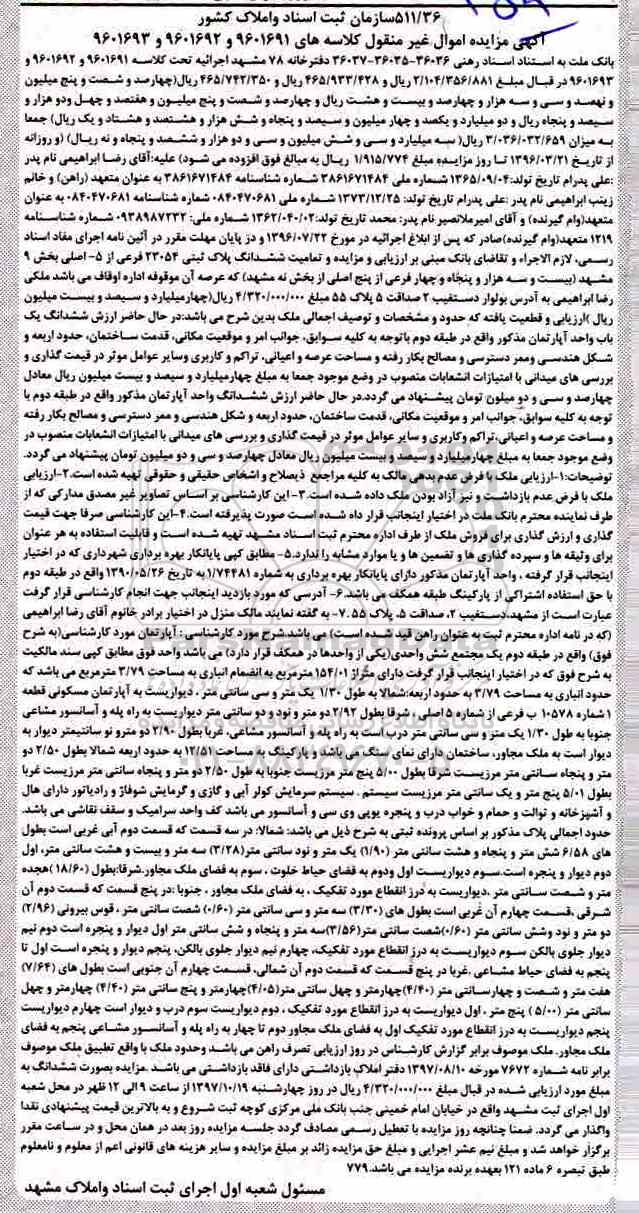 ۵۱۱/۳۶سازمان ثبت اسناد واملاک کشور
آگهی مزایده اموال غیر منقول کلاسه های ۹۶۰۱۶۹۱ و ۹۶۰۱۶۹۲ و ۹۶۰۱۶۹۳
بانک ملت به استناد اسناد رهنی ۳۶۰۳۶-۳۶۰۳۵-۳۶۰۳۷ دفترخانه ۷۸ مشهد اجرائیه تحت کلاسه ۹۶۰۱۶۹۱ و ۹۶۰۱۶۹۲ و
۹۶۰۱۶۹۳ در قبال مبلغ ۲/۱۰۴/۳۵۶/۸۸۱ ریال و ۴۶۵/۹۳۳/۴۲۸ ریال و ۴۶۵/۷۴۲/۳۵۰ ریال(چهارصد و شصت و پنج میلیون
و نهصد و سی و سه هزار و چهارصد و بیست و هشت ریال و چهارصد و شصت و پنج میلیون و هفتصد و چهل ودو هزار و
سیصد و پنجاه ریال و دو میلیارد و یکصد و چهار میلیون و سیصد و پنجاه و شش هزار و هشتصد و هشتاد و یک ریال) جمعا
به میزان ۳/۰۳۶/۰۳۲/۶۵۹ ریال( سه میلیارد و سی و شش میلیون و سی و دو هزار و ششصد و پنجاه و نه ریال) (و روزانه
از تاریخ ۱۳۹۶/۰۳/۲۱ تا روز مزایده مبلغ ۱/۹۱۵/۷۷۴ ریال به مبالغ فوق افزوده می شود) علیه:آقای رضا ابراهیمی نام پدر
:علی پدرام تاریخ تولد:۱۳۶۵/۰۹/۰۴شماره ملی ۳۸۶۱۶۷۱۴۸۴ شماره شناسنامه ۳۸۶۱۶۷۱۴۸۴ به عنوان متعهد (راهن) و خانم
زینب ابراهیمی نام پدر :علی پدرام تاریخ تولد: ۱۳۷۳/۱۲/۲۵ شماره ملی ۰۸۴۰۴۷۰۶۸۱ شماره شناسنامه ۰۸۴۰۴۷۰۶۸۱ به عنوان
متعهد(وام گیرنده) و آقای امیرملانصیر نام پدر: محمد تاریخ تولد:۱۳۶۲/۰۴/۰۲ شماره ملی: ۰۹۳۸۹۸۷۲۳۲ شماره شناسنامه
۱۲۱۹ متعهد(وام گیرنده)صادر که پس از ابلاغ اجرائیه در مورخ ۱۳۹۶/۰۷/۲۲ و در پایان مهلت مقرر در آئین نامه اجرای مفاد اسناد
رسمی، لازم الاجراء و تقاضای بانک مبنی بر ارزیابی و مزایده و تمامیت ششدانگ پلاک ثبتی ۲۳۰۵۴ فرعی از ۵- اصلی بخش ۹
مشهد (بیست و سه هزار و پنجاه و چهار فرعی از پنج اصلی از بخش نه مشهد) که عرصه آن موقوفه اداره اوقاف می باشد ملکی
رضا ابراهیمی به آدرس بولوار دستغیب ۲ صداقت ۵ پلاک ۵۵ مبلغ ۴/۳۲۰/۰۰۰/۰۰۰ ریال(چهارمیلیارد و سیصد و بیست میلیون
ریال )ارزیابی و قطعیت یافته که حدود و مشخصات و توصیف اجمالی ملک بدین شرح می باشد:در حال حاضر ارزش ششدانگ یک
باب واحد آپارتمان مذکور واقع در طبقه دوم باتوجه به کلیه سوابق، جوانب امر و موقعیت مکانی، قدمت ساختمان، حدود اربعه و
شکل هندسی وممر دسترسی و مصالح بکار رفته و مساحت عرصه و اعیانی، تراکم و کاربری وسایر عوامل موثر در قیمت گذاری و
بررسی های میدانی با امتیازات انشعابات منصوب در وضع موجود جمعا به مبلغ چهارمیلیارد و سیصد و بیست میلیون ریال معادل
چهارصد و سی و دو میلون تومان پیشنهاد می گردد.در حال حاضر ارزش ششدانگ واحد آپارتمان مذکور واقع در طبقه دوم با
توجه به کلیه سوابق، جوانب امر و موقعیت مکانی، قدمت ساختمان، حدود اربعه و شکل هندسی و ممر دسترسی و مصالح بکار رفته
و مساحت عرصه و اعیانی،تراکم وکاربری و سایر عوامل موثر در قیمت گذاری و بررسی های میدانی با امتیازات انشعابات منصوب در
وضع موجود جمعا به مبلغ چهارمیلیارد و سیصد و بیست میلیون ریال معادل چهارصد و سی و دو میلیون تومان پیشنهاد می گردد.
توضیحات:۱-ارزیابی ملک با فرض عدم بدهی مالک به کلیه مراجعع ذیصلاح و اشخاص حقیقی و حقوقی تهیه شده است.۲-ارزیابی
ملک با فرض عدم بازداشت و نیز آزاد بودن ملک داده شده است.۳- این کارشناسی بر اساس تصاویر غیر مصدق مدارکی که از
طرف نماینده محترم بانک ملت در اختیار اینجانب قرار داه شده است صورت پذیرفته است.۴-این کارشناسی صرفا جهت قیمت
گذاری و ارزش گذاری برای فروش ملک از طرف اداره محترم ثبت اسناد مشهد تهیه شده است و قابلیت استفاده به هر عنوان
برای وثیقه ها و سپرده گذاری ها و تضمین ها و یا موارد مشابه را ندارد.۵- مطابق کپی پایانکار بهره برداری شهرداری که در اختیار
اینجانب قرار گرفته ، واحد آپارتمان مذکور دارای پایانکار بهره برداری به شماره ۱/۷۴۴۸۱ به تاریخ ۱۳۹۰/۰۵/۲۶ واقع در طبقه دوم
با حق استفاده اشتراکی از پارکینگ طبقه همکف می باشد.۶- آدرسی که مورد بازدید اینجانب جهت انجام کارشناسی قرار گرفت
عبارت است از مشهد،دستغیب ۲، صداقت ۵، پلاک ۵۵.۷- به گفته نمایند مالک منزل در اختیار برادر خانوم آقای رضا ابراهیمی
(که در نامه اداره محترم ثبت به عنوان راهن قید شده است) می باشد.شرح مورد کارشناسی : آپارتمان مورد کارشناسی(به شرح
فوق) واقع در طبقه دوم یک مجتمع شش واحدی(یکی از واحدها در همکف قرار دارد) می باشد واحد فوق مطابق کپی سند مالکیت
به شرح فوق که در اختیار اینجانب قرار گرفت دارای متراژ ۱۵۴/۰۱مترمربع به انضمام انباری به مساحت ۳/۷۹ مترمربع می باشد که
حدود انباری به مساحت ۳/۷۹ به حدود اربعه:شمالا به طول ۱/۳۰ یک متر و سی سانتی متر ، دیواریست به آپارتمان مسکونی قطعه
۱شماره ۱۰۵۷۸ ب فرعی از شماره ۵ اصلی ، شرقا بطول ۲/۹۲ دو متر و نود و دو سانتی متر دیواریست به راه پله و آسانسور مشاعی
جنوبا به طول ۱/۳۰ یک متر و سی سانتی متر درب است به راه پله و آسانسور مشاعی، غربا بطول ۲/۹۰ دو مترو نو سانتیمتر دیوار به
دیوار است به ملک مجاور، ساختمان دارای نمای سنگ می باشد ، و پارکینگ به مساحت ۱۲/۵۱ به حدود اربعه شمالا بطول ۲/۵۰ دو
متر و پنجاه سانتی متر مرزیست شرقا بطول ۵/۰۰ پنج متر مرزیست جنوبا به طول ۲/۵۰ دو متر و پنجاه سانتی متر مرزیست غربا
بطول ۵/۰۱ پنج متر و یک سانتی متر مرزیست سیستم . سیستم سرمایش کولر آبی و گازی و گرمایش شوفاژ و رادیاتور دارای هال
و آشپزخانه و توالت و حمام و خواب درب و پنجره یوپی وی سی و آسانسور می باشد کف واحد سرامیک و سقف نقاشی می باشد.
حدود اجمالی پلاک مذکور بر اساس پرونده ثبتی به شرح ذیل می باشد: شمالا: در سه قسمت که قسمت دوم آبی غربی است بطول
های ۶/۵۸ شش متر و پنجاه و هشت سانتی متر (۱/۹۰) یک متر و نود سانتی متر(۳/۲۸) سه متر و بیست و هشت سانتی متر، اول
دوم دیوار و پنجره است.سوم دیواریست اول ودوم به فضای حیاط خلوت ، سوم به فضای ملک مجاور.شرقا:بطول (۱۸/۶۰)هجده
متر و شصت سانتی متر ،دیواریست به درز انقطاع مورد تفکیک ، به فضای ملک مجاور ، جنوبا :در پنج قسمت که قسمت دوم آن
شرقی ،قسمت چهارم آن غربی است بطول های (۳/۳۰) سه متر و سی سانتی متر (۰/۶۰) شصت سانتی متر ، قوس بیرونی (۲/۹۶)
دو متر و نود وشش سانتی متر (۰/۶۰)شصت سانتی متر(۳/۵۶)سه متر و پنجاه و شش سانتی متر اول دیوار و پنجره است دوم نیم
دیوار جلوی بالکن سوم دیواریست به درز انقطاع مورد تفکیک، چهارم نیم دیوار جلوی بالکن، پنجم دیوار و پنجره است اول تا
پنجم به فضای حیاط مشاعی ،غربا در پنج قسمت که قسمت دوم آن شمالی، قسمت چهارم آن جنوبی است بطول های (۷/۶۴)
هفت متر و شصت و چهارسانتی متر (۴/۴۰)چهارمتر و چهل سانتی متر(۴/۰۵)چهارمتر و پنج سانتی متر (۴/۴۰) چهارمتر و چهل
سانتی متر (۵/۰۰ ) پنج متر ، اول دیواریست به درز انقطاع مورد تفکیک ، دوم دیواریست سوم درب و دیوار است چهارم دیواریست
پنجم دیواریست به درز انقطاع مورد تفکیک اول به فضای ملک مجاور دوم تا چهار به راه پله و آسانسور مشاعی پنجم به فضای
ملک مجاور. ملک موصوف برابر گزارش کارشناس در روز ارزیابی تصرف راهن می باشد وحدود ملک با واقع تطبیق ملک موصوف
برابر نامه شماره ۷۶۷۲ مورخه ۱۳۹۷/۰۸/۱۰ دفتر املاک بازداشتی دارای فاقد بازداشتی می باشد .مزایده بصورت ششدانگ به
مبلغ مورد ارزیابی شده در قبال مبلغ ۴/۳۲۰/۰۰۰/۰۰۰ ریال در روز چهارشنبه ۱۳۹۷/۱۰/۱۹ از ساعت ۹ الی ۱۲ ظهر در محل شعبه
اول اجرای ثبت مشهد واقع در خیابان امام خمینی جنب بانک ملی مرکزی کوچه ثبت شروع و به بالاترین قیمت پیشنهادی نقدا
واگذار می گردد. ضمنا چنانچه روز مزایده با تعطیل رسمی مصادف گردد جلسه مزایده روز بعد در همان محل و در ساعت مقرر
برگزار خواهد شد و مبلغ نیم عشر اجرایی و مبلغ حق مزایده زائد بر مبلغ مزایده و سایر هزینه های قانونی اعم از معلوم و نامعلوم
طبق تبصره ۶ ماده ۱۲۱ بعهده برنده مزایده می باشد.۷۷۹
مسئول شعبه اول اجرای ثبت اسناد واملاک مشهد